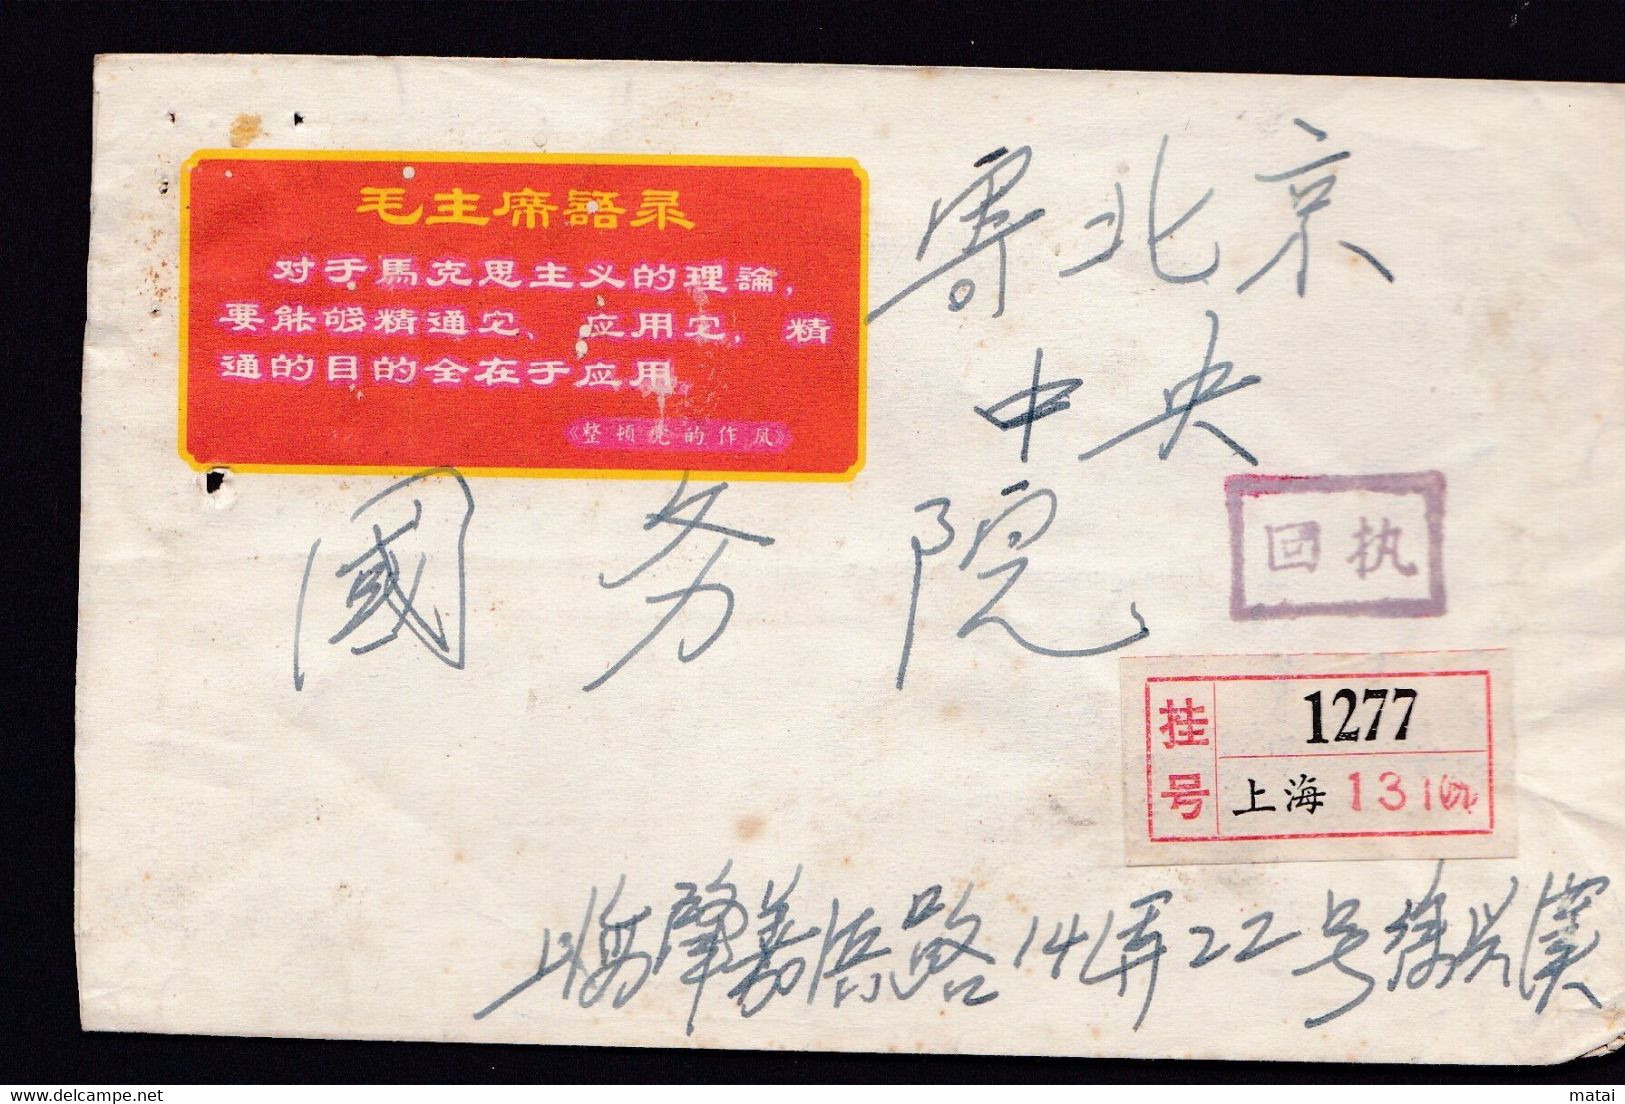 毛主席語录
对于馬克思主义的理論，
要能够精通它、应用它，精
通的目的全在于应用
《整顿党的作风》
寄北京
中央
國务院
回执
挂号
1277
上海 13
上海肇嘉浜路14弄22号徐兴漢
delcampe.net
matai